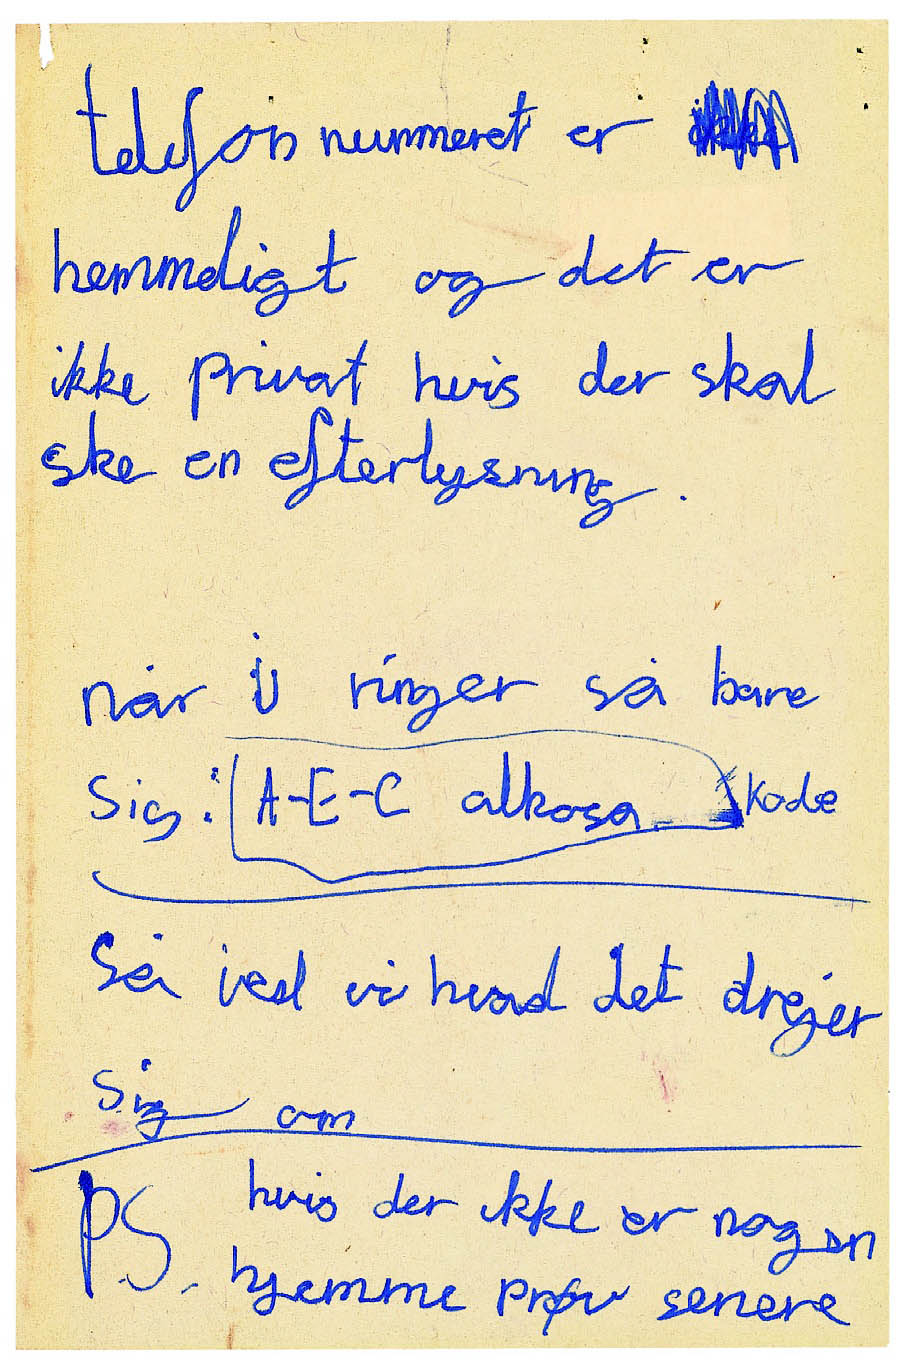 telefon nummeret er
hemmeligt og det er
ikke privat hvis der skal
ske en efterlysning.
når i ringer så bare
Sig: A-E-C alkosa Kode
Så ved vi hvad det drejer
sig om
P.S. hvis der ikke er nogen
hjemme prøv senere